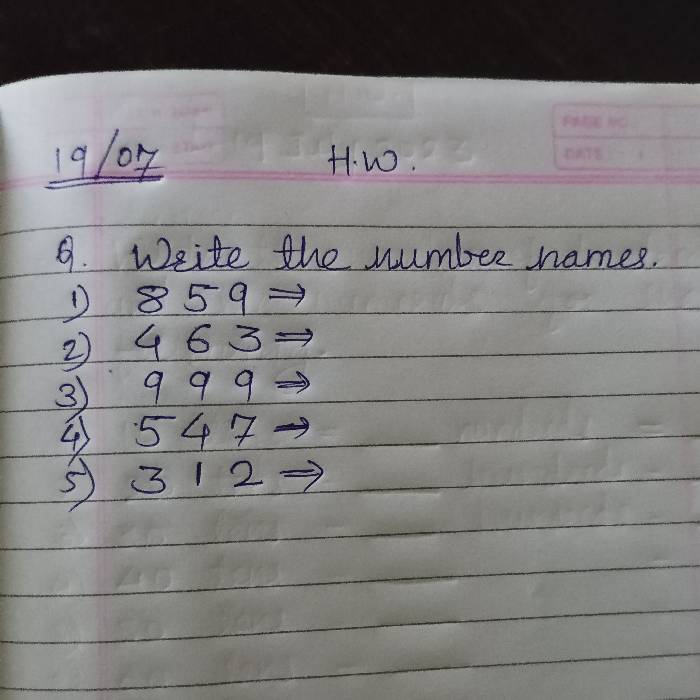 19/07 H.W.
Q. Write the number names.
1) 859 ⇒
2) 463 ⇒
3) 999 ⇒
4) 547 ⇒
5) 312 ⇒
PAGE NO.
DATE